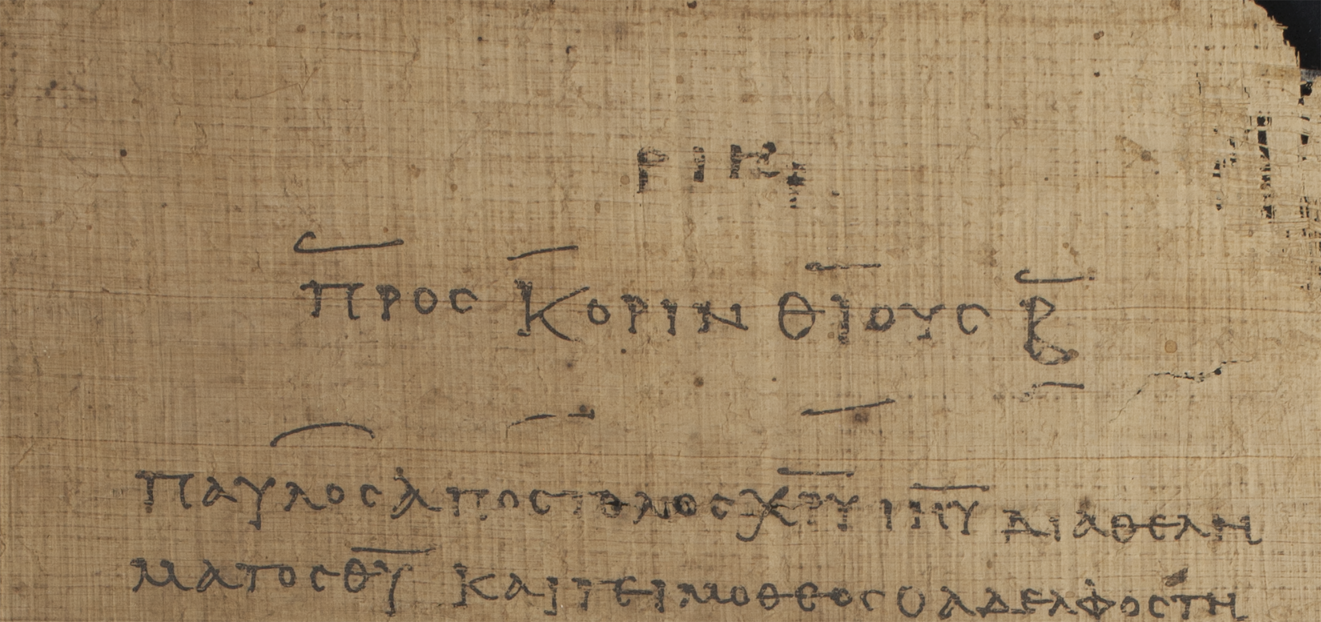 ΡΙΗ
ΠΡΟϹ ΚΟΡΙΝΘΙΟΥϹ Β̅
ΠΑΥΛΟϹ ΑΠΟϹΤΟΛΟϹ Χ̅Ρ̅Υ̅ Ι̅Η̅Υ̅ ΔΙΑ ΘΕΛΗ
ΜΑΤΟϹ Θ̅Υ̅ ΚΑΙ ΤΕΙΜΟΘΕΟϹ Ο ΑΔΕΛΦΟϹ ΤΗ